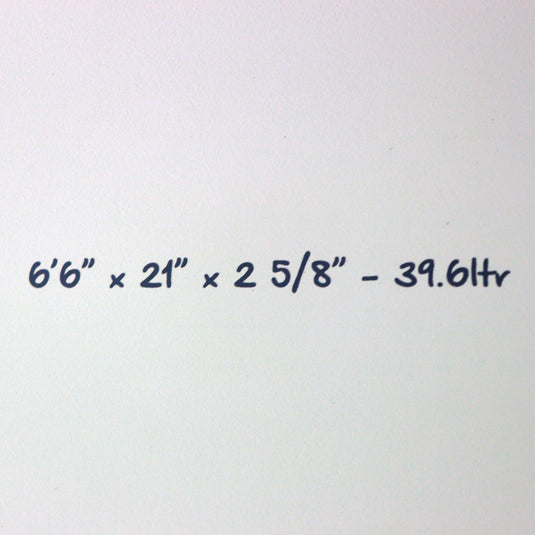 6'6" x 21" x 2 5/8" - 39.6ltr